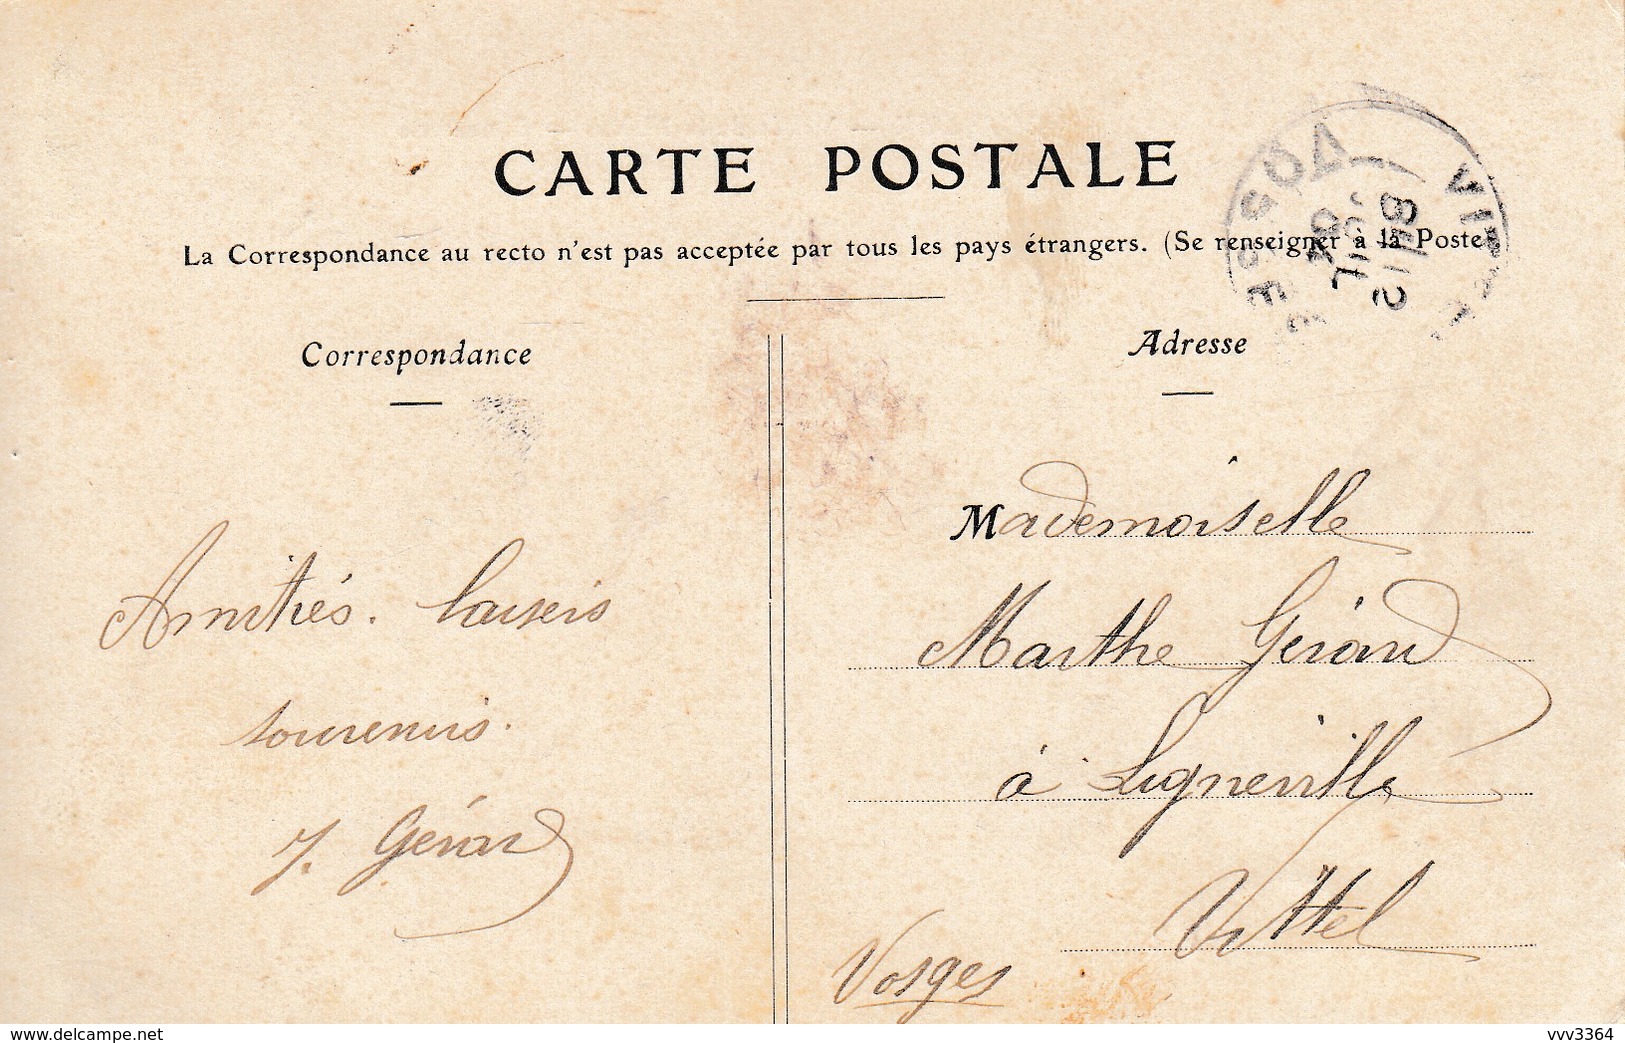 CARTE POSTALE
La Correspondance au recto n'est pas acceptée par tous les pays étrangers. (Se renseigner à la Poste
Correspondance
Amitiés. baisers
souvenirs.
J. Gérard
Adresse
Mademoiselle
Marthe Gérard
à Ligneville
Vittel
Vosges
VOSGES
delcampe.net
vvv3364